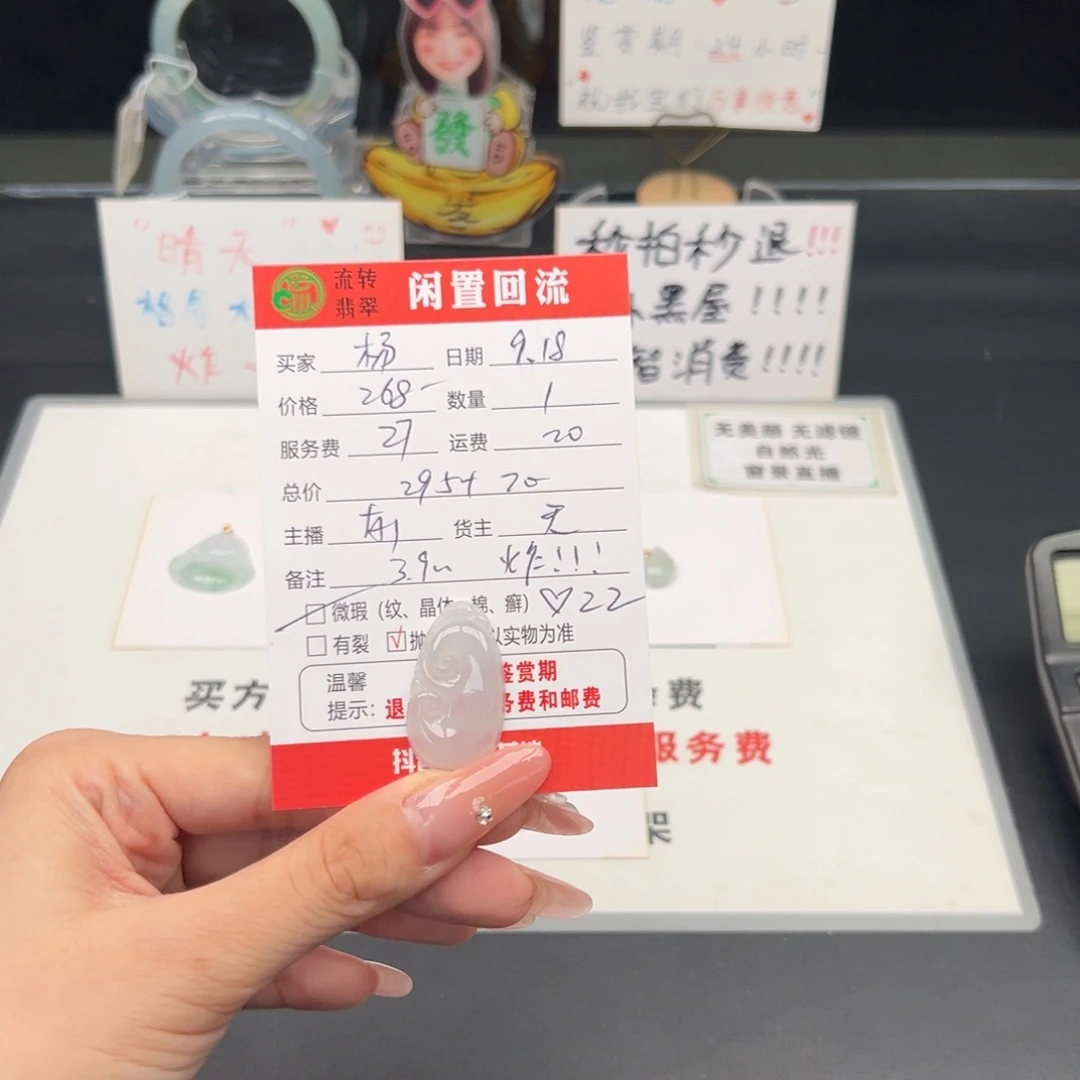 鉴赏期 24小时
發
"晴天"
炸
秒拍秒退!!!
小黑屋!!!!
智消费!!!!
无美颜 无滤镜
自然光
窗景直播
流转
翡翠
闲置回流
买家 杨 日期 9.18
价格 268- 数量 1
服务费 27 运费 20
总价 295+20
主播 货主 无
备注 3.9 炸!!!
微瑕(纹、晶体、棉、癣) ♡22
有裂 √抛 以实物为准
温馨 鉴赏期
提示:退 务费和邮费
抖
买方 费
服务费
架